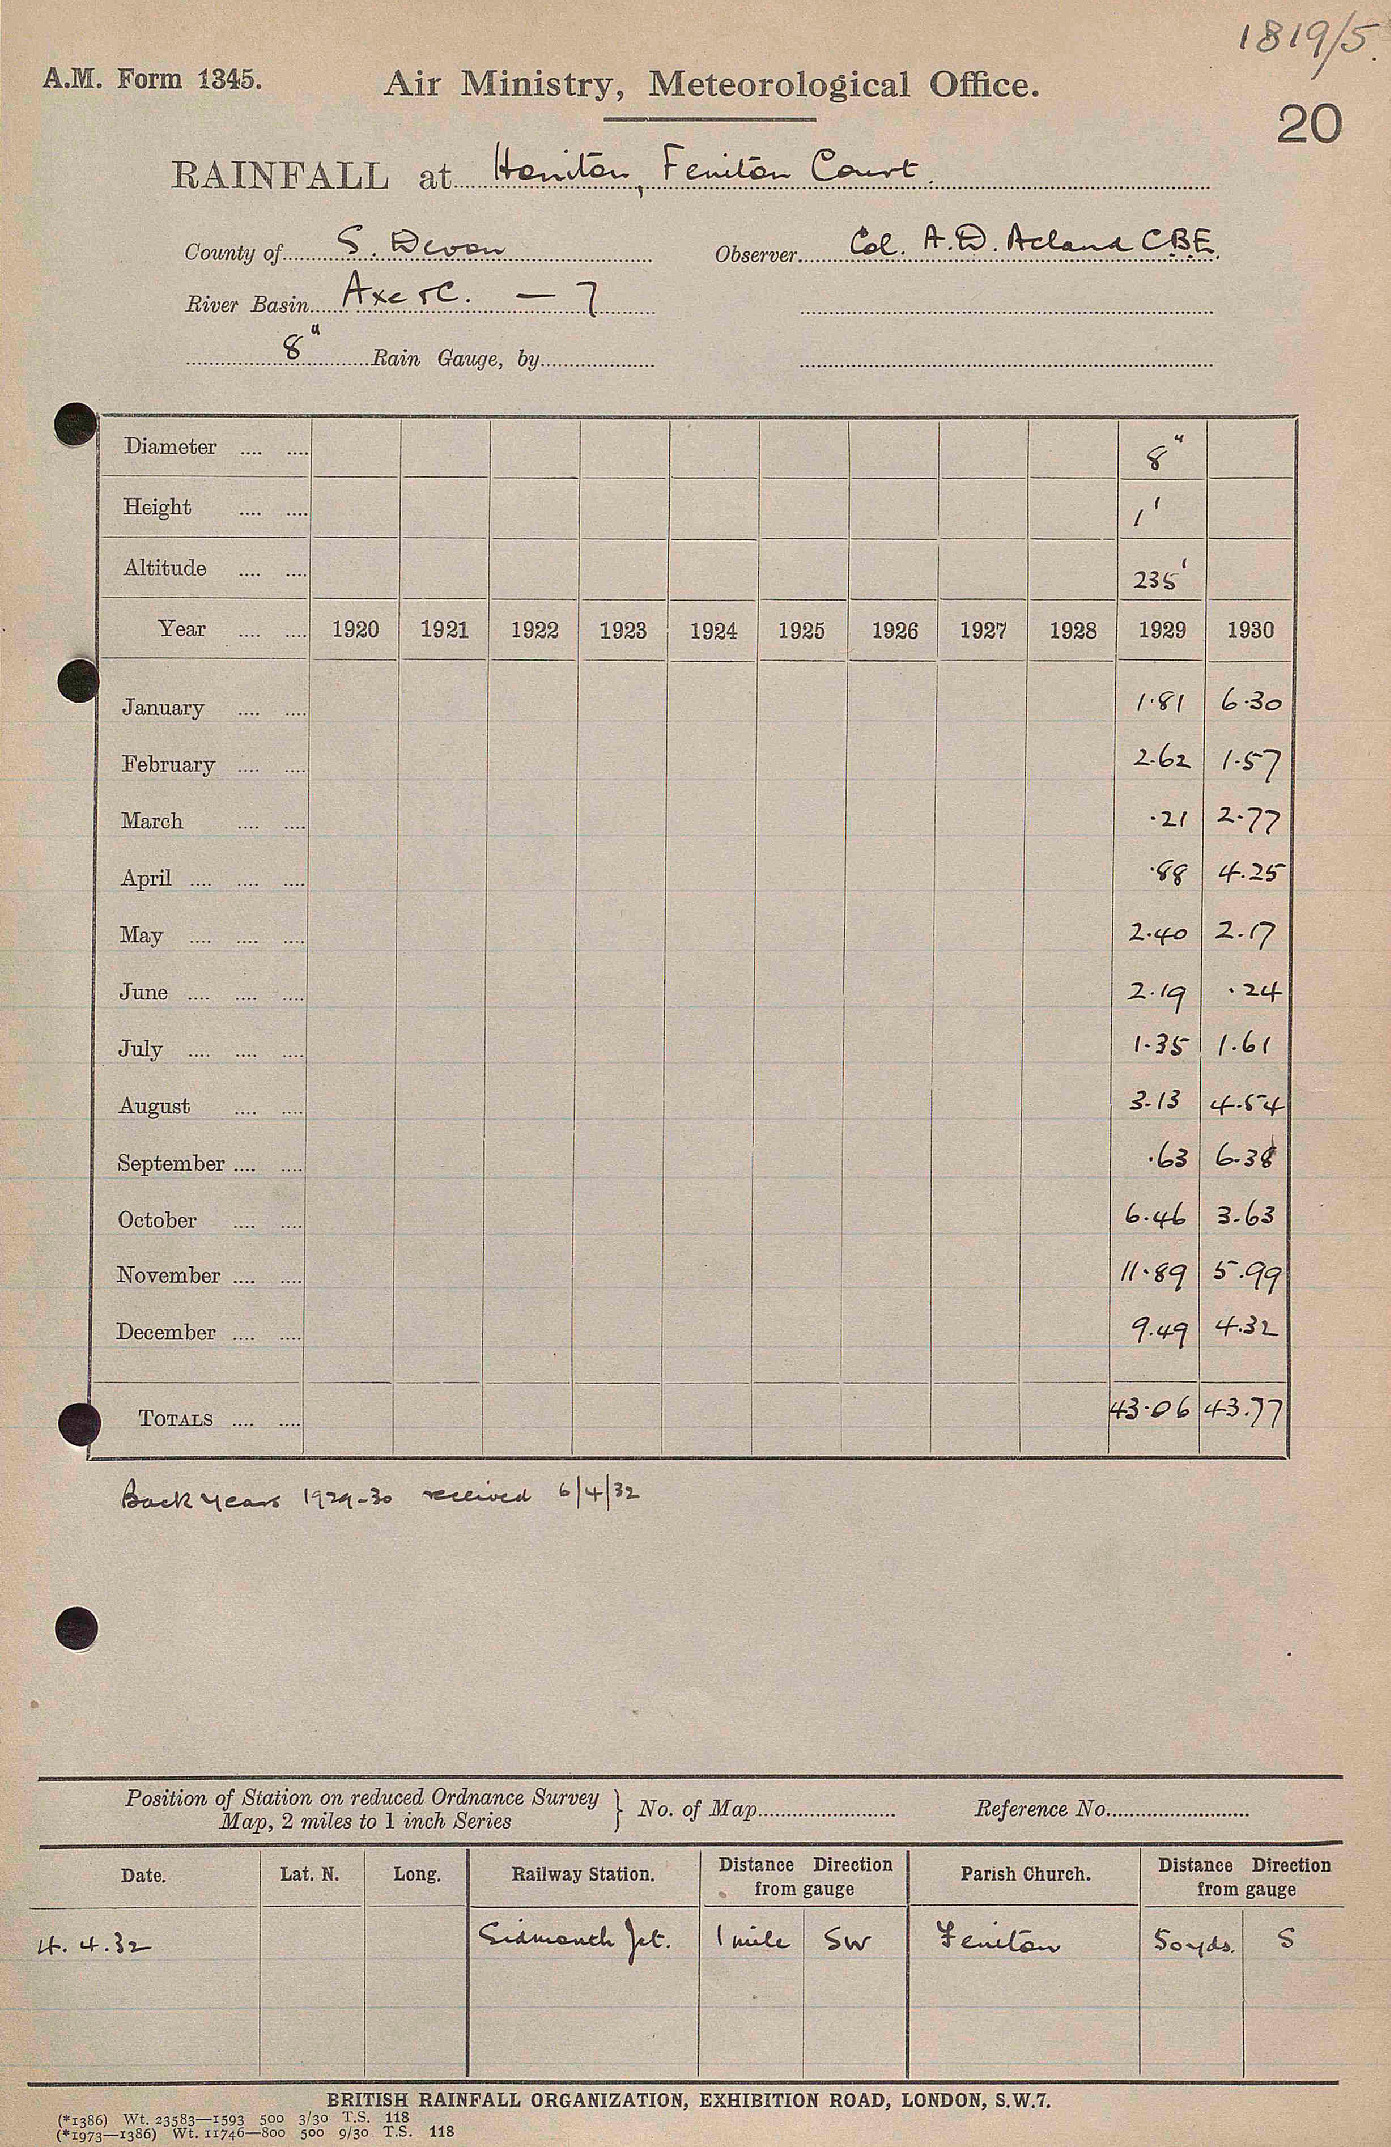 1819/5.
A.M. Form 1345. Air Ministry, Meteorological Office.
20
RAINFALL at Honiton, Feniton Court.
County of S. Devon Observer Col. A.D. Acland CBE.
River Basin Axe &C. — 7
8" Rain Gauge, by
Diameter .... .... 8"
Height .... .... 1'
Altitude .... .... 235'
Year .... .... 1920 1921 1922 1923 1924 1925 1926 1927 1928 1929 1930
January .... .... 1.81 6.30
February .... .... 2.62 1.57
March .... .... .21 2.77
April .... .... .... .88 4.25
May .... .... .... 2.40 2.17
June .... .... .... 2.19 .24
July .... .... .... 1.35 1.61
August .... .... 3.13 4.54
September .... .... .63 6.38
October .... .... 6.46 3.63
November .... .... 11.89 5.99
December .... .... 9.49 4.32
TOTALS .... .... 43.06 43.77
Back years 1929-30 received 6/4/32
Position of Station on reduced Ordnance Survey
Map, 2 miles to 1 inch Series } No. of Map Reference No.
Date. Lat. N. Long. Railway Station. Distance Direction from gauge Parish Church. Distance Direction from gauge
4.4.32 Sidmouth Jct. 1 mile SW Feniton 50 yds. S
BRITISH RAINFALL ORGANIZATION, EXHIBITION ROAD, LONDON, S.W.7.
(*1386) Wt. 23583—1593 500 3/30 T.S. 118
(*1973—1386) Wt. 11746—800 500 9/30 T.S. 118